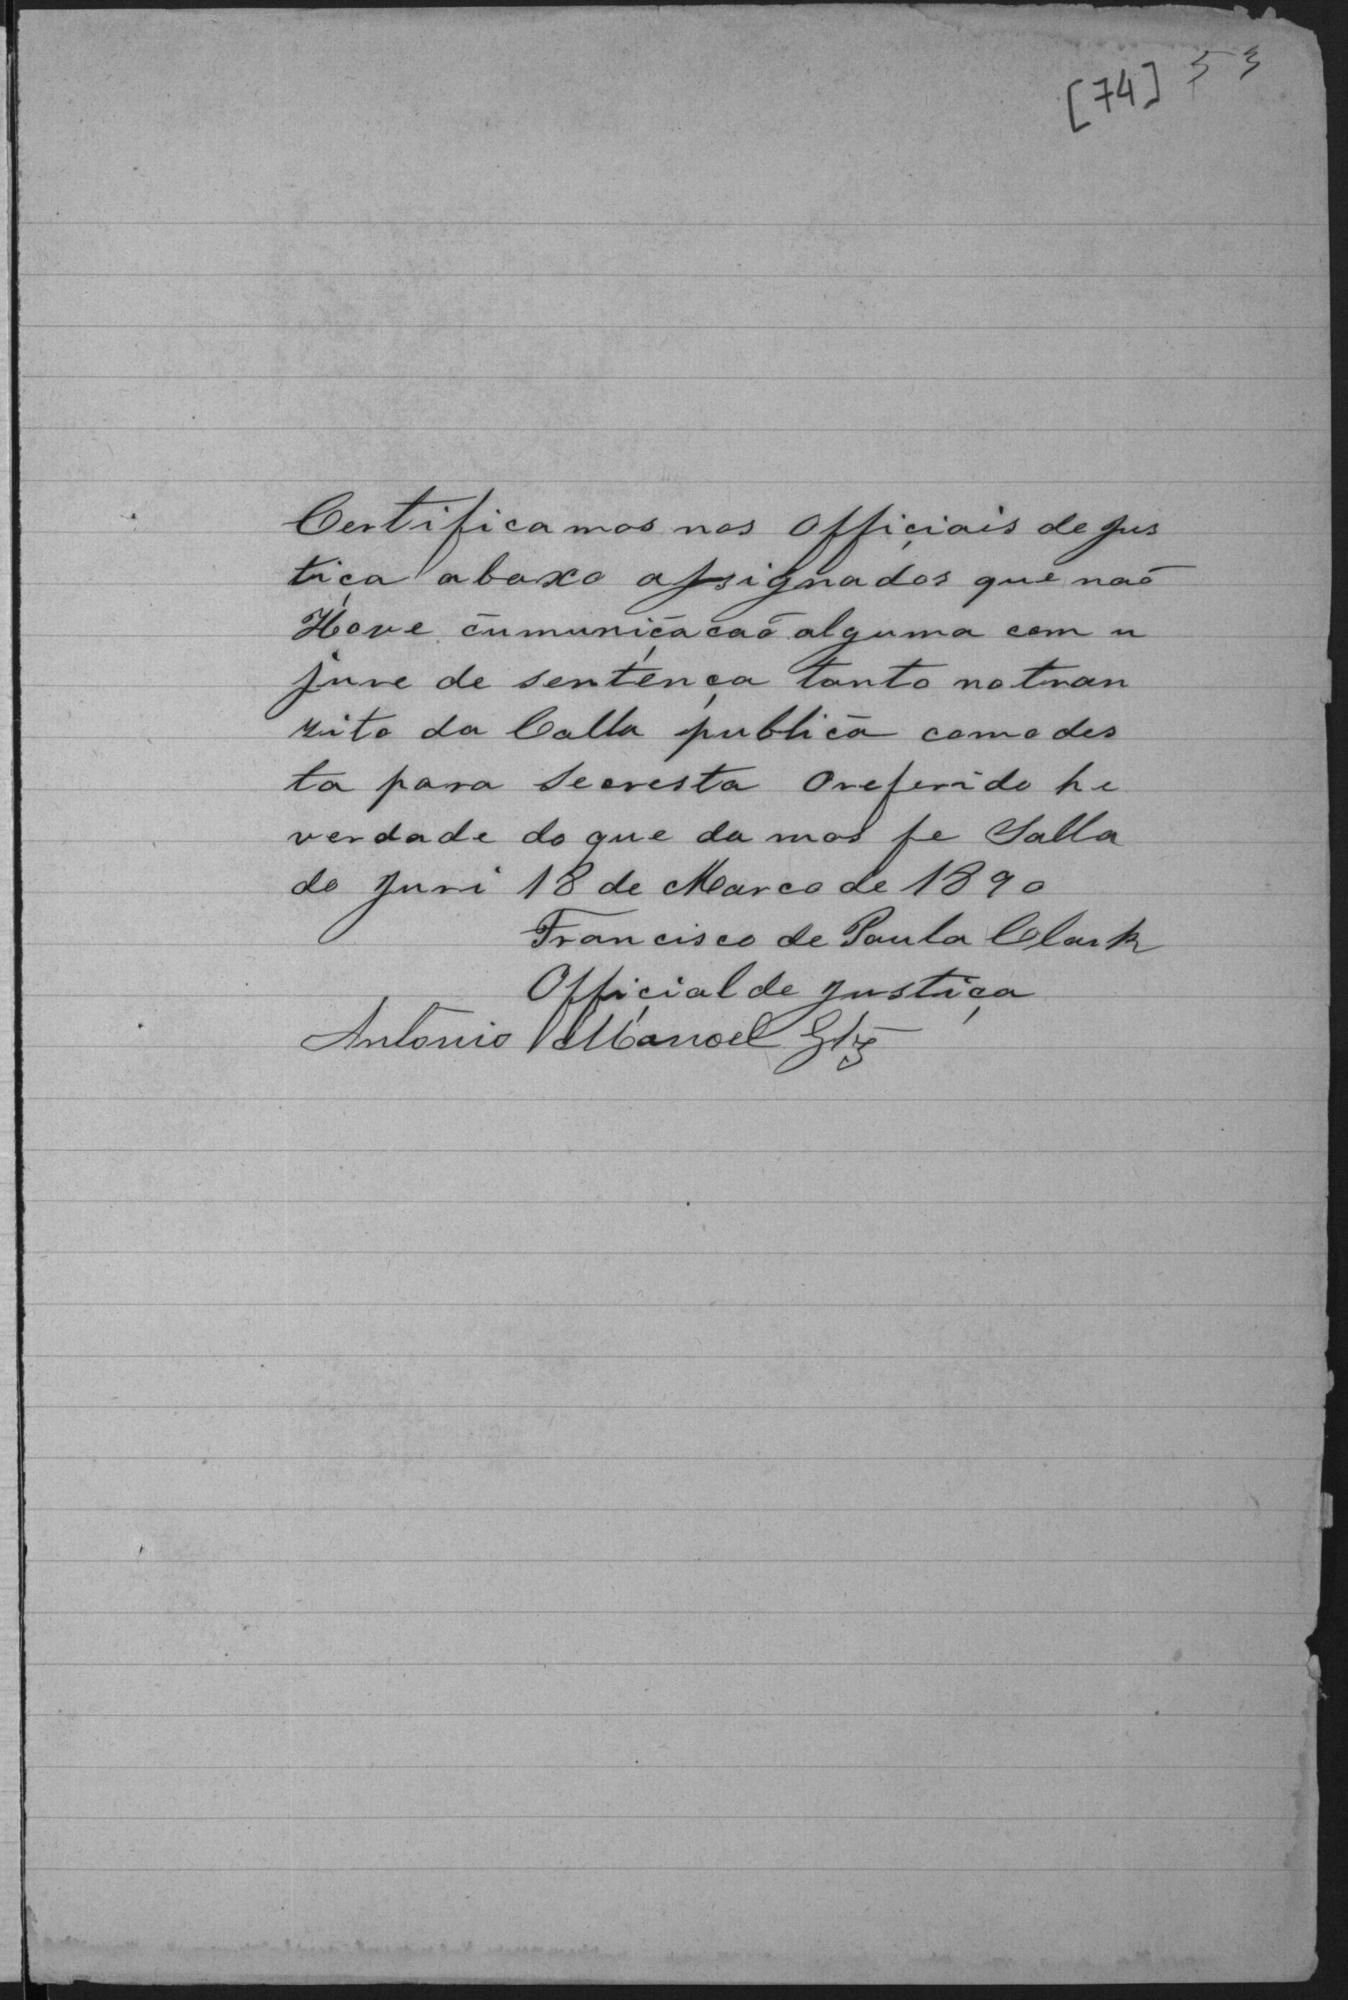 [74] 53
Certificamos nos Officiais de jus
tiça abaxo assignados que naõ
Hove cumunicacaõ alguma com u
jure de sentença tanto no tran
zito da Calla publica como des
ta para Secresta O referido he
verdade do que damos fe Salla
do Juri 18 de Março de 1890
Francisco de Paula Clark
Official de justiça
Antonio Manoel Glz